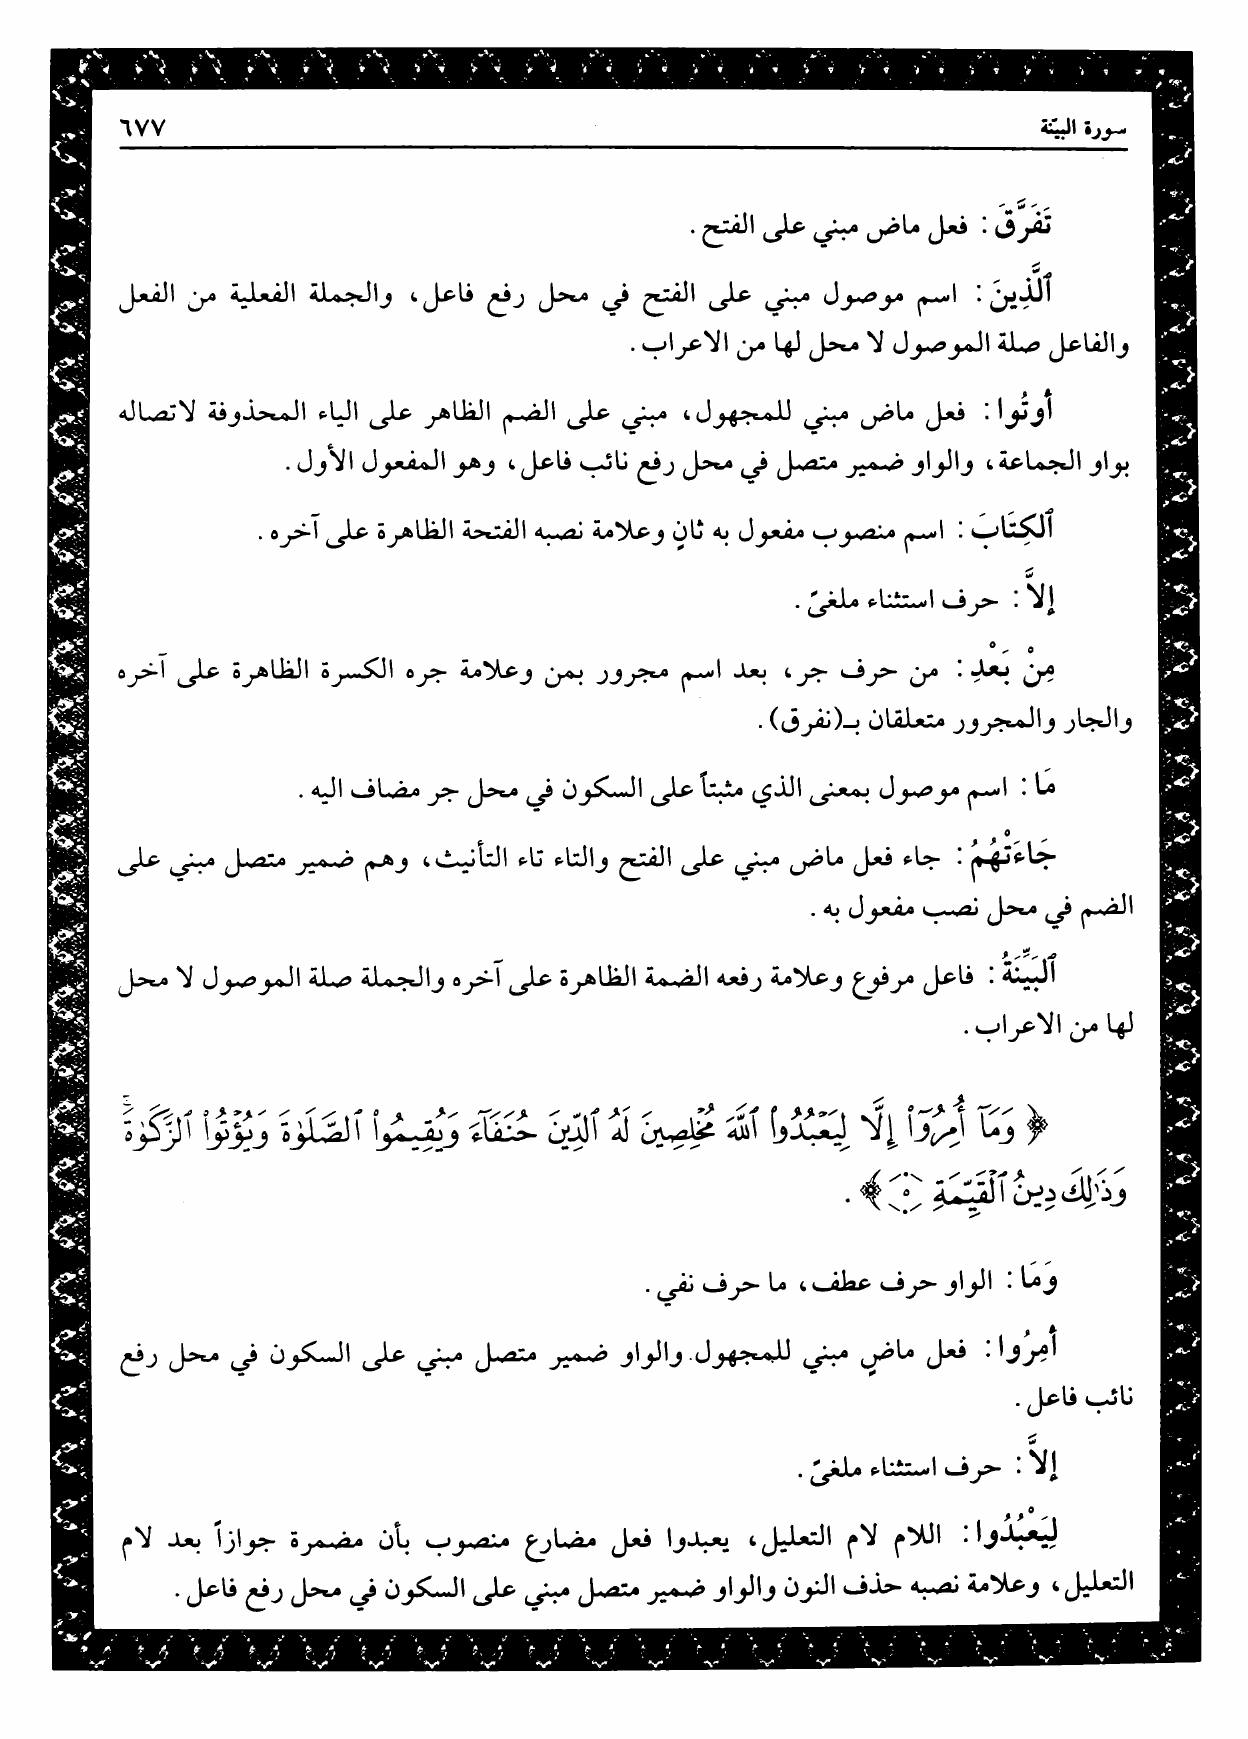 سورة البيّنة ٦٧٧
تَفَرَّقَ : فعل ماض مبني على الفتح .
ٱلَّذِينَ : اسم موصول مبني على الفتح في محل رفع فاعل، والجملة الفعلية من الفعل
والفاعل صلة الموصول لا محل لها من الاعراب .
أُوتُوا : فعل ماض مبني للمجهول، مبني على الضم الظاهر على الياء المحذوفة لاتصاله
بواو الجماعة، والواو ضمير متصل في محل رفع نائب فاعل، وهو المفعول الأول .
ٱلكِتَابَ : اسم منصوب مفعول به ثانٍ وعلامة نصبه الفتحة الظاهرة على آخره .
إلاَّ : حرف استثناء ملغىً .
مِنْ بَعْدِ : من حرف جر، بعد اسم مجرور بمن وعلامة جره الكسرة الظاهرة على آخره
والجار والمجرور متعلقان بـ(نفرق) .
مَا : اسم موصول بمعنى الذي مثبتاً على السكون في محل جر مضاف اليه .
جَاءَتْهُمُ : جاء فعل ماض مبني على الفتح والتاء تاء التأنيث، وهم ضمير متصل مبني على
الضم في محل نصب مفعول به .
ٱلبَيِّنَةُ : فاعل مرفوع وعلامة رفعه الضمة الظاهرة على آخره والجملة صلة الموصول لا محل
لها من الاعراب .
﴿ وَمَآ أُمِرُوٓا۟ إِلَّا لِيَعْبُدُوا۟ ٱللَّهَ مُخْلِصِينَ لَهُ ٱلدِّينَ حُنَفَآءَ وَيُقِيمُوا۟ ٱلصَّلَوٰةَ وَيُؤْتُوا۟ ٱلزَّكَوٰةَ ۚ
وَذَٰلِكَ دِينُ ٱلْقَيِّمَةِ ۝٥ ﴾ .
وَمَا : الواو حرف عطف، ما حرف نفي .
أُمِرُوا : فعل ماضٍ مبني للمجهول. والواو ضمير متصل مبني على السكون في محل رفع
نائب فاعل .
إلاَّ : حرف استثناء ملغىً .
لِيَعْبُدُوا : اللام لام التعليل، يعبدوا فعل مضارع منصوب بأن مضمرة جوازاً بعد لام
التعليل، وعلامة نصبه حذف النون والواو ضمير متصل مبني على السكون في محل رفع فاعل .